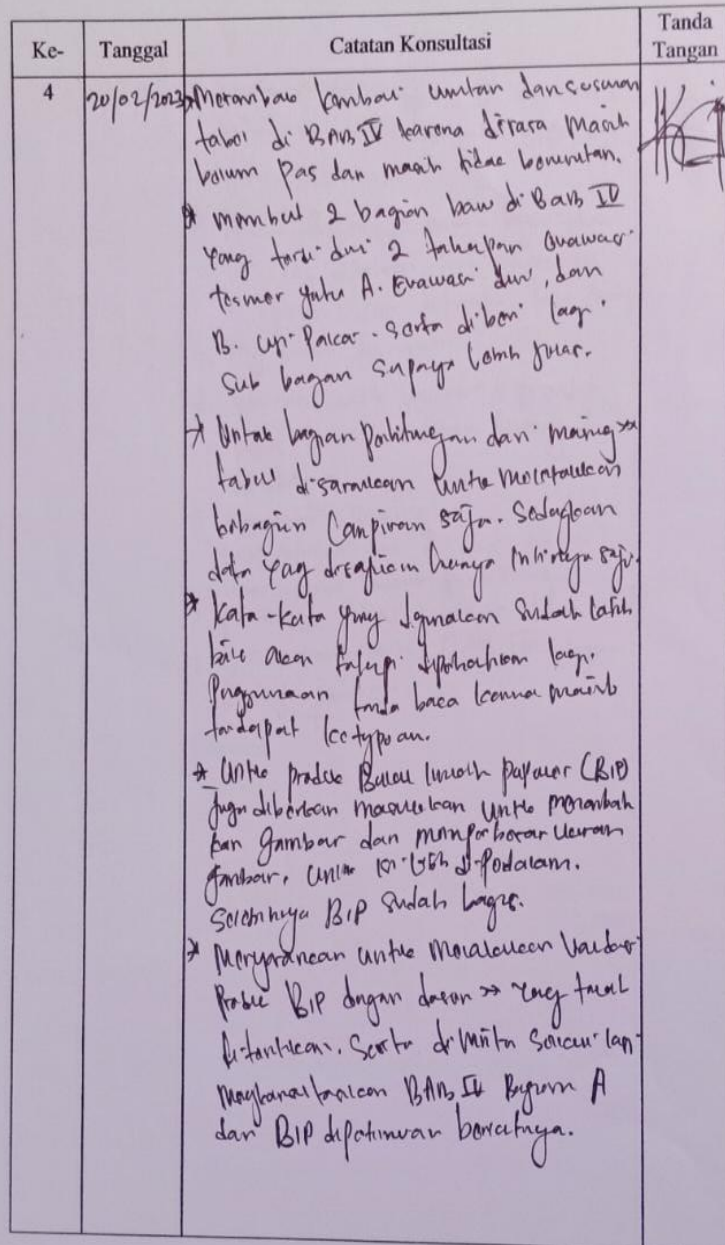 Ke- Tanggal Catatan Konsultasi Tanda Tangan
4 20/02/2023 Merombak kembali urutan dan susunan
tabel di BAB IV karena dirasa masih
belum pas dan masih tidak berurutan.
membuat 2 bagian baru di Bab IV
yang terdiri dari 2 tahapan evaluasi
tesmer yaitu A. Evaluasi diri, dan
B. uji pakar. serta diberi lagi
sub bagian supaya lebih jelas.
Untuk bagian perhitungan dari masing"
tabel disarankan untuk meletakkan
dibagian lampiran saja. Sedangkan
data yang disajikan hanya intinya saja.
Kata-kata yang digunakan sudah lebih
baik akan tetapi diperhatikan lagi.
Penggunaan tanda baca karena masih
terdapat ketypoan.
Untuk produk Buku Ilmiah Populer (BIP)
juga diberikan masukkan untuk menambah
kan gambar dan memperbesar ukuran
gambar, untuk isi lebih diperdalam.
Selebihnya BIP sudah bagus.
Menyarankan untuk melakukan validasi
Produk BIP dengan dosen" yang telah
ditentukan. Serta diminta
BAB IV Bagian A
dan BIP dipertemuan berikutnya.